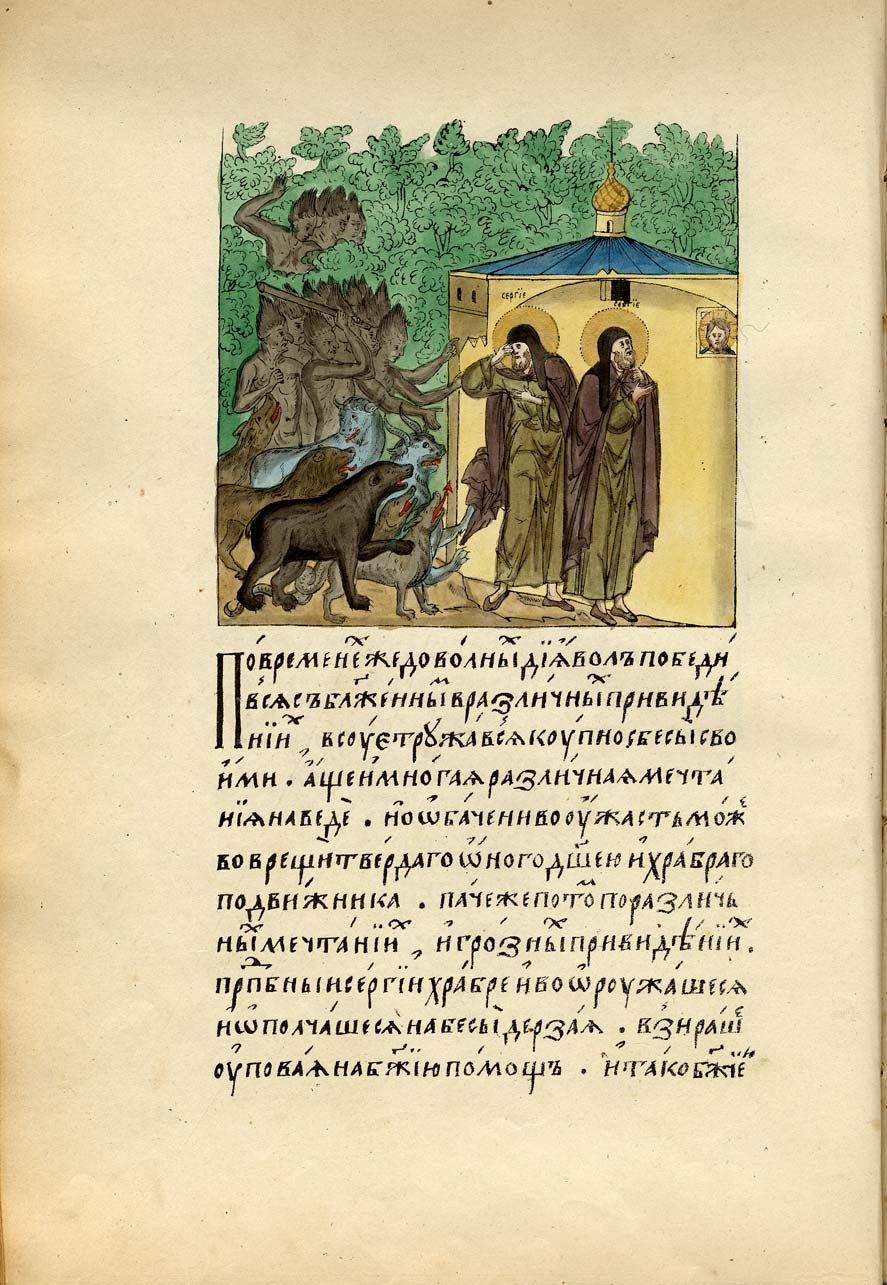 сергїе
сергїе
По времене́ⷯ же дово́лныⷯ дїѧ́волъ победи́
всѧ́ съ блаже́нныⷨ в разли́чныⷯ привидѣ́
нїиⷯ, всꙋ́е трꙋжа́всѧ кꙋ́пно с бесы̀ сво
и́ми. а҆́ще и҆ мно́гаѧ разли́чнаѧ мечта́
нїѧ наведѐ. но̀ ѻ҆ба́че ни во ꙋ҆́жасть мо́же
во вре́щи тве́рдагѡ ѻ҆́ногѡ дш҃е́ю и҆ хра́брагѡ
подви́жника. па́че же пото́ⷨ по разли́чь
ныⷯ мечта́нїиⷯ, и҆ гро́зныⷯ привидѣ́нїиⷯ.
прпⷣбныи се́ргїи хра́брѣе воѡрꙋжа́шесѧ
и҆ ѡ҆полча́шесѧ на бесы̀ дерза́ѧ. взира́ше
ᲂу҆пова́ѧ на бж҃їю по́мощъ. и҆ та́ко бж҃їеи